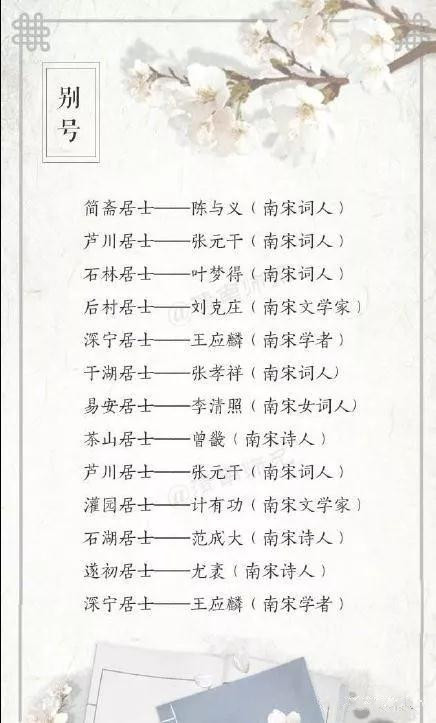 别号
简斋居士——陈与义（南宋词人）
芦川居士——张元干（南宋词人）
石林居士——叶梦得（南宋词人）
后村居士——刘克庄（南宋文学家）
深宁居士——王应麟（南宋学者）
于湖居士——张孝祥（南宋词人）
易安居士——李清照（南宋女词人）
茶山居士——曾畿（南宋诗人）
芦川居士——张元干（南宋词人）
灌园居士——计有功（南宋文学家）
石湖居士——范成大（南宋诗人）
遂初居士——尤袤（南宋诗人）
深宁居士——王应麟（南宋学者）